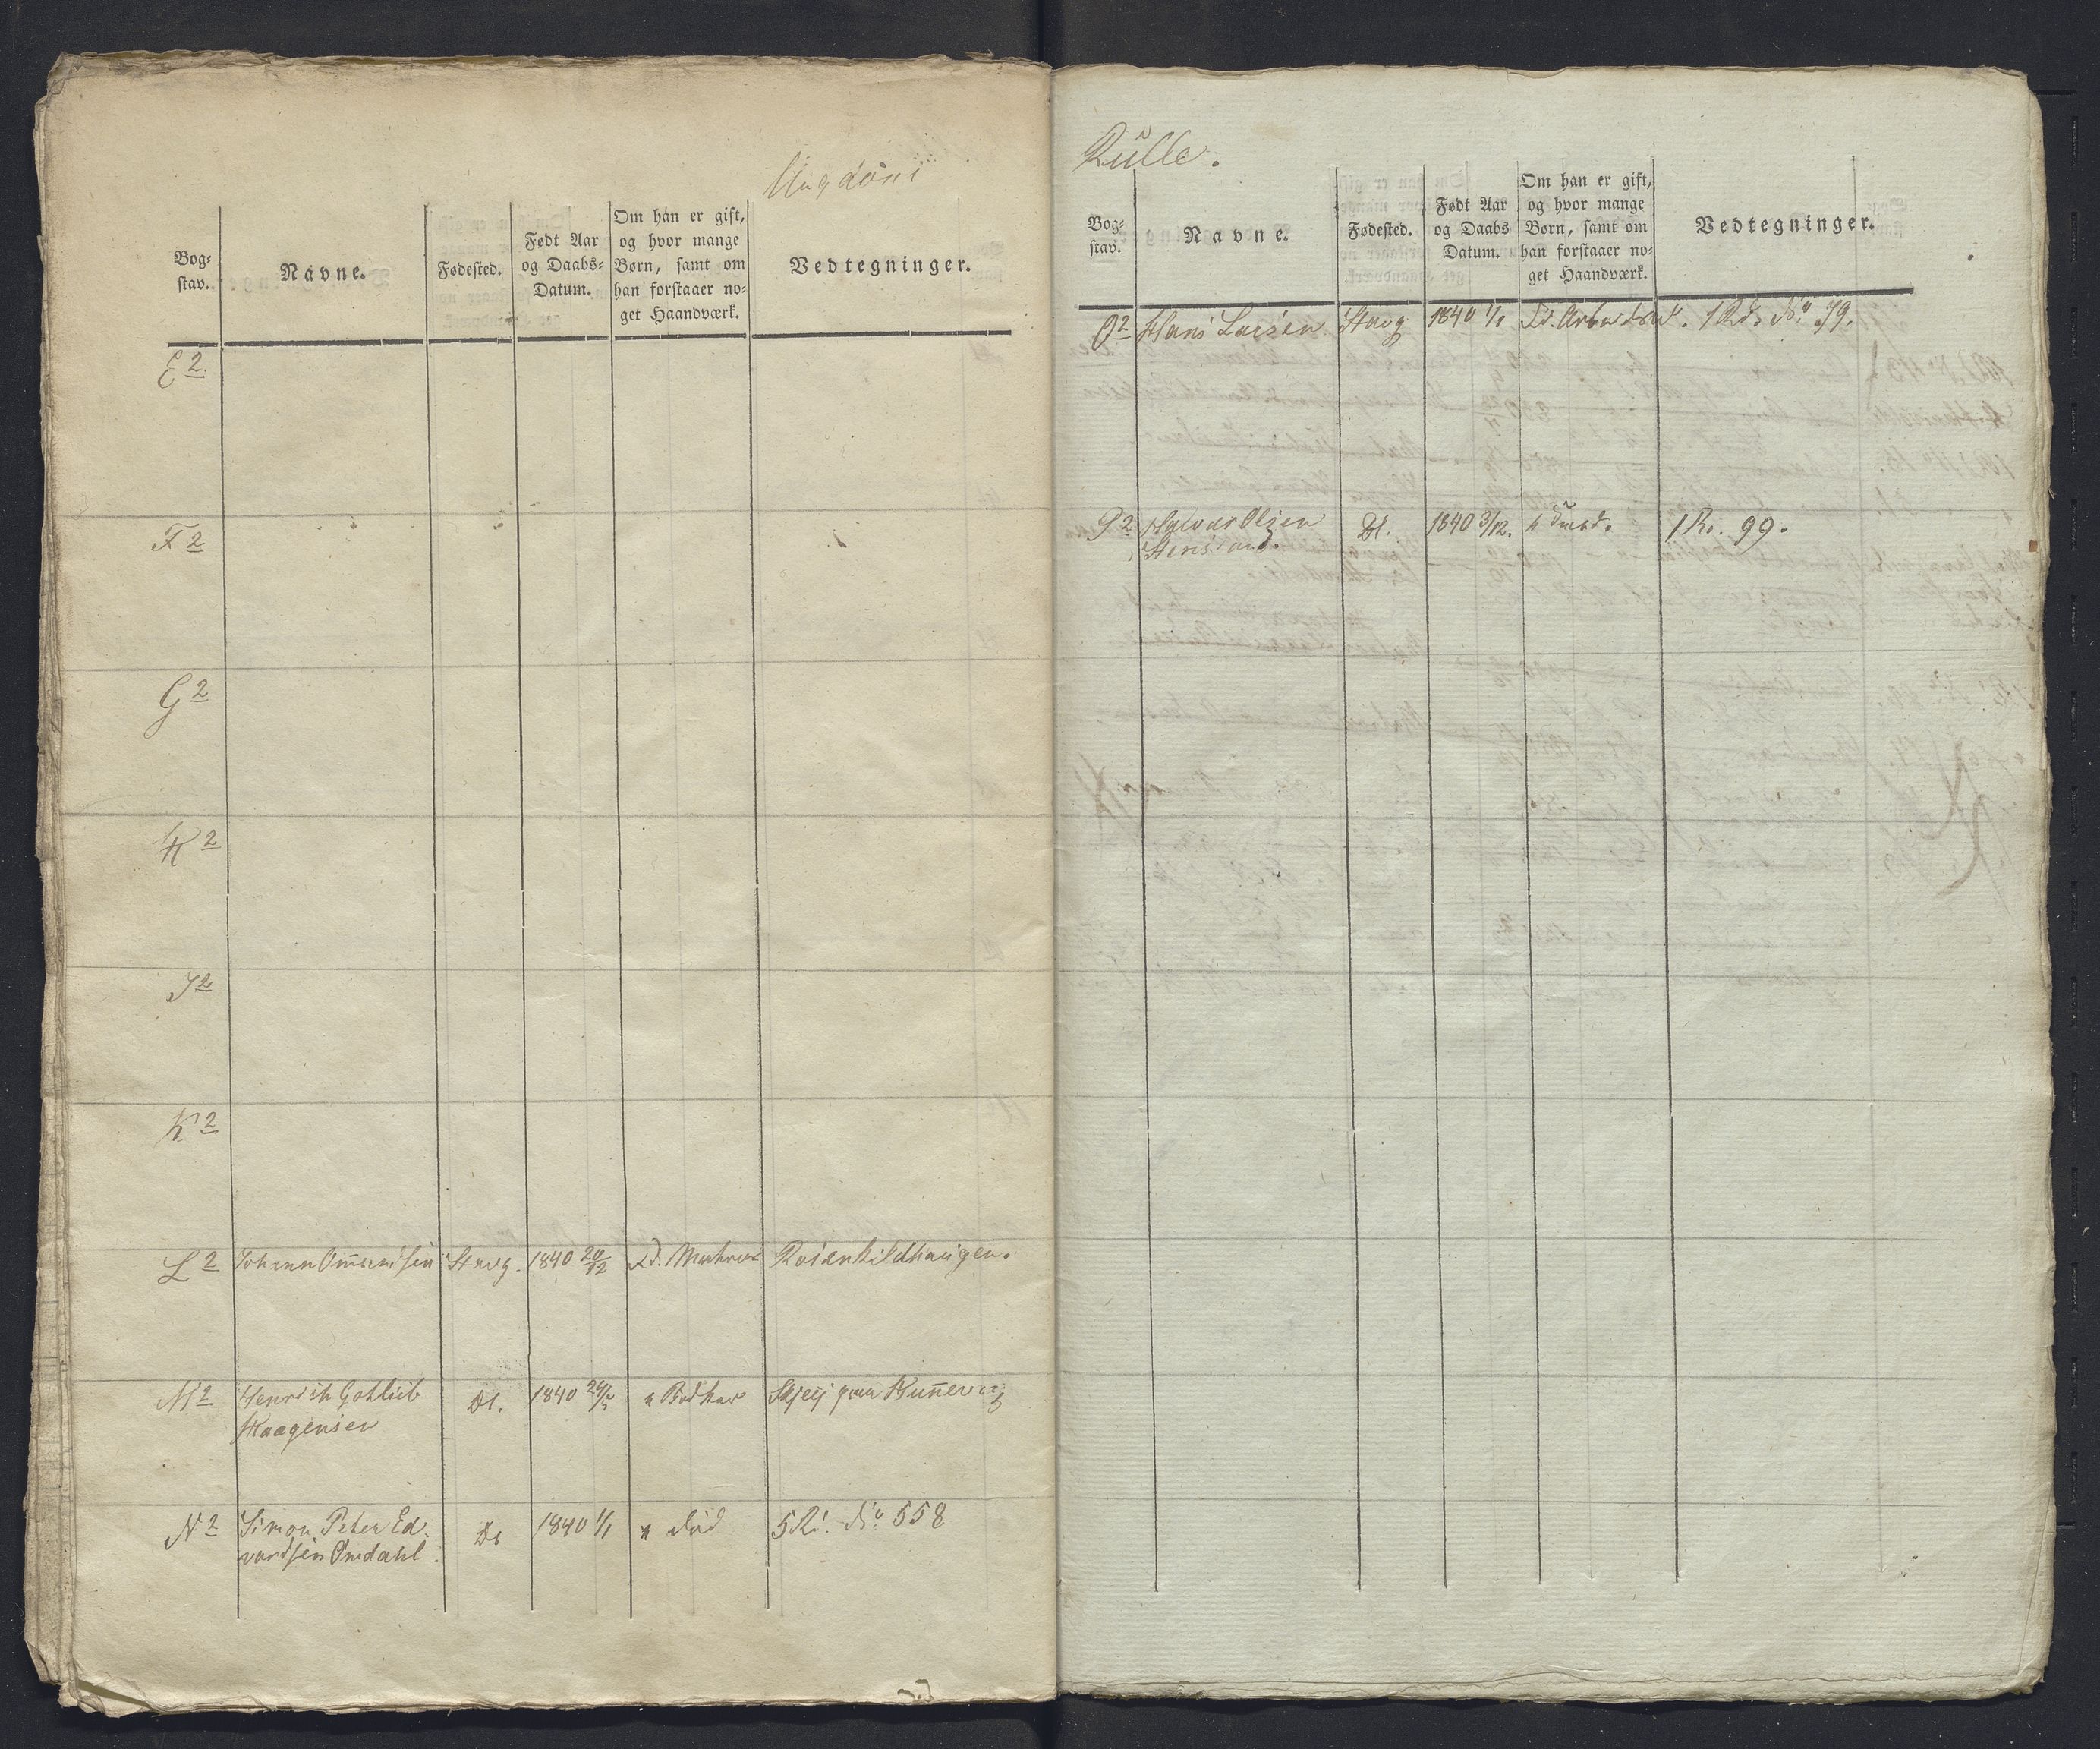 Ungdoms
Bog-
stav.
Navne.
Fødested.
Født Aar
og Daabs-
Datum.
Om han er gift,
og hvor mange
Børn, samt om
han forstaaer no-
get Haandværk.
Vedtegninger.
E 2.
F 2
G 2
H 2
I 2
K 2
L 2 Johan Om̄undsen Stavg. 1840 20/12 Rosenkildhaugen.
M 2 Henrich Gotlieb Dt. 1840 " Bødker
Haagensen
N 2 Simon Peter Ed- Dt 1840 1/1 " 5 Rd. No 558
vardsen Omdahl.
Rulle.
Bog-
stav.
Navne.
Fødested.
Født Aar
og Daabs
Datum.
Om han er gift,
og hvor mange
Børn, samt om
han forstaaer no-
get Haandværk.
Vedtegninger.
O 2 Hans Larsen Stavg 1840 1/1 1 Rd. No 79.
P 2 Halvor Olsen Dt. 1840 3/12. " Smed. 1 R. 99.